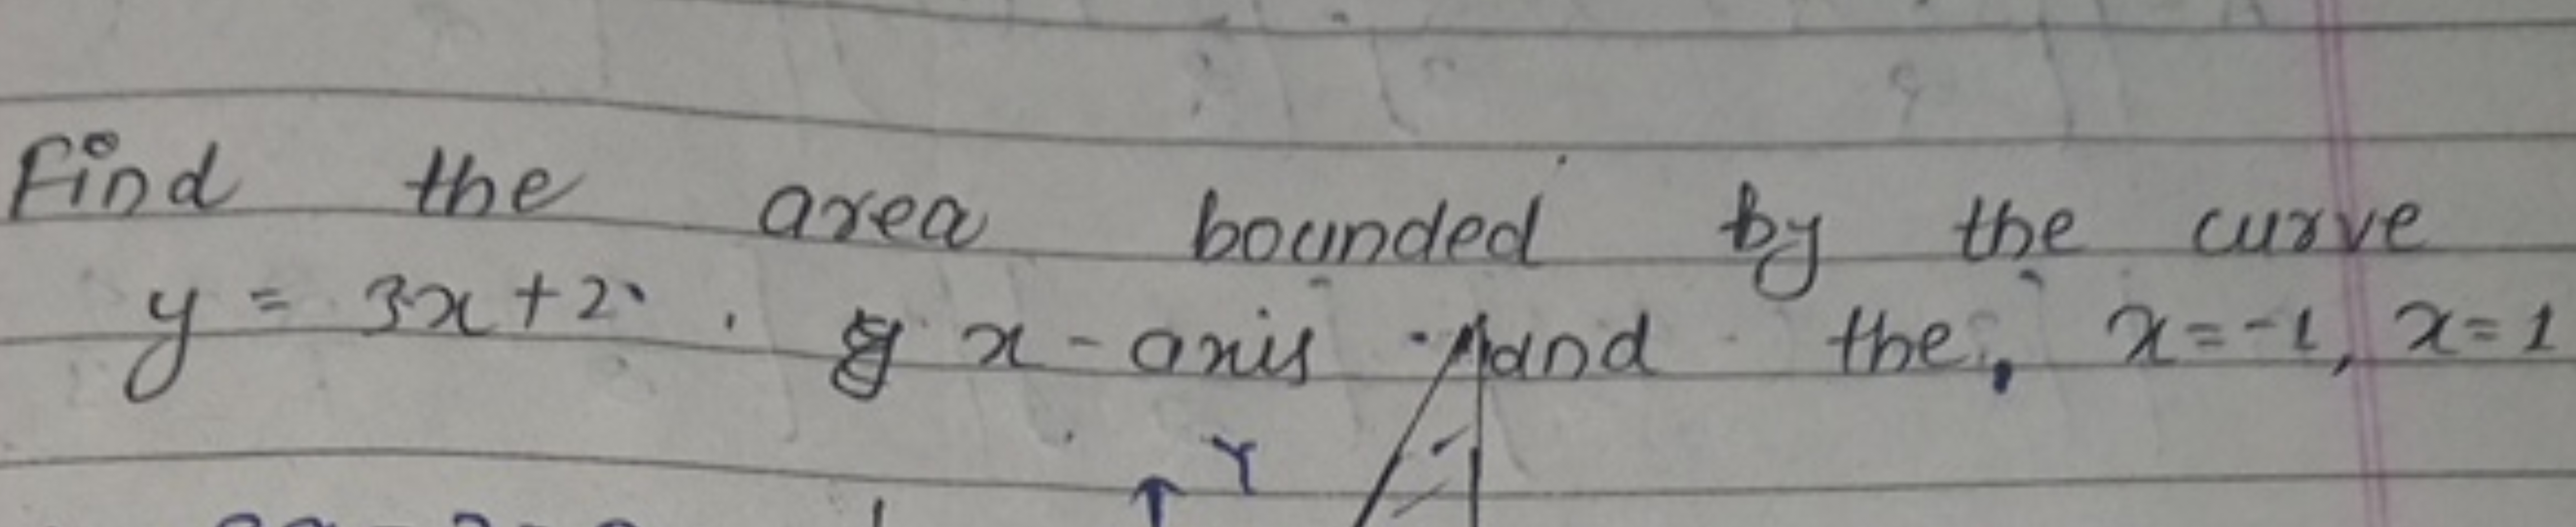 Find the area bounded by the curve
y = 3x+2. x-axis and the, x=-1, x=1
Y